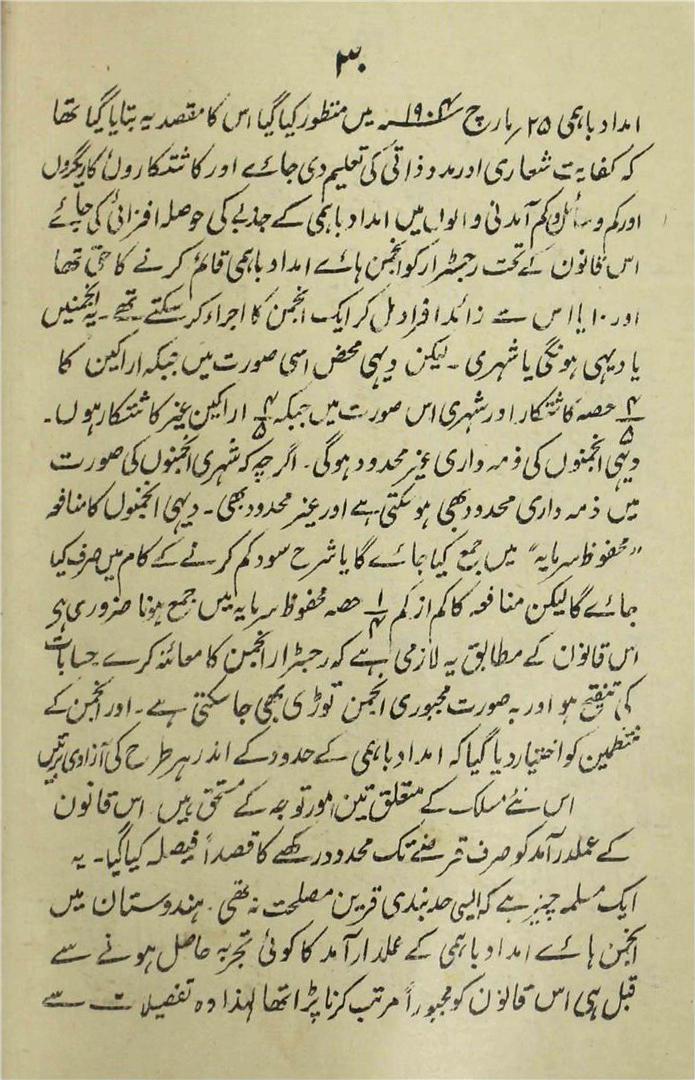 ۳۰
امداد باہمی ۲۵/ مارچ ۱۹۰۴ء میں منظور کیا گیا اس کا مقصد یہ بتایا گیا تھا
کہ کفایت شعاری اور مدد ذاتی کی تعلیم دی جائے اور کاشتکاروں کاریگروں
اور کم وسائل و کم آمدنی والوں میں امداد باہمی کے جذبے کی حوصلہ افزائی کی جائے
اس قانون کے تحت رجسٹرار کو انجمن ہائے امداد باہمی قائم کرنے کا حق تھا
اور ۱۰ یا اس سے زائد افراد مل کر ایک انجمن کا اجراء کر سکتے تھے۔ یہ انجمنیں
یا دیہی ہونگی یا شہری۔ لیکن دیہی محض اسی صورت میں جبکہ اراکین کا
۴/۵ حصہ کاشتکار اور شہری اس صورت میں جبکہ ۴/۵ اراکین غیر کاشتکار ہوں۔
دیہی انجمنوں کی ذمہ داری غیر محدود ہوگی۔ اگرچہ کہ شہری انجمنوں کی صورت
میں ذمہ داری محدود بھی ہو سکتی ہے اور غیر محدود بھی۔ دیہی انجمنوں کا منافعہ
"محفوظ سرمایہ" میں جمع کیا جائے گا یا شرح سود کم کرنے کے کام میں صرف کیا
جائے گا لیکن منافعہ کا کم از کم ۱/۴ حصہ محفوظ سرمایہ میں جمع ہونا ضروری ہی
اس قانون کے مطابق یہ لازمی ہے کہ رجسٹرار انجمن کا معائنہ کرے حسابات
کی تنقیح ہو اور بہ صورت مجبوری انجمن توڑی بھی جا سکتی ہے۔ اور انجمن کے
منتظمین کو اختیار دیا گیا کہ امداد باہمی کے حدود کے اندر ہر طرح کی آزادی برتیں
اس نئے مسلک کے متعلق تین امور توجہ کے مستحق ہیں اس قانون
کے عملدرآمد کو صرف قرضے تک محدود رکھے کا قصداً فیصلہ کیا گیا۔ یہ
ایک مسلمہ چیز ہے کہ ایسی حد بندی قرین مصلحت نہ تھی۔ ہندوستان میں
انجمن ہائے امداد باہمی کے عملدرآمد کا کوئی تجربہ حاصل ہونے سے
قبل ہی اس قانون کو مجبوراً مرتب کرنا پڑا تھا لہذا وہ تفصیلات سے